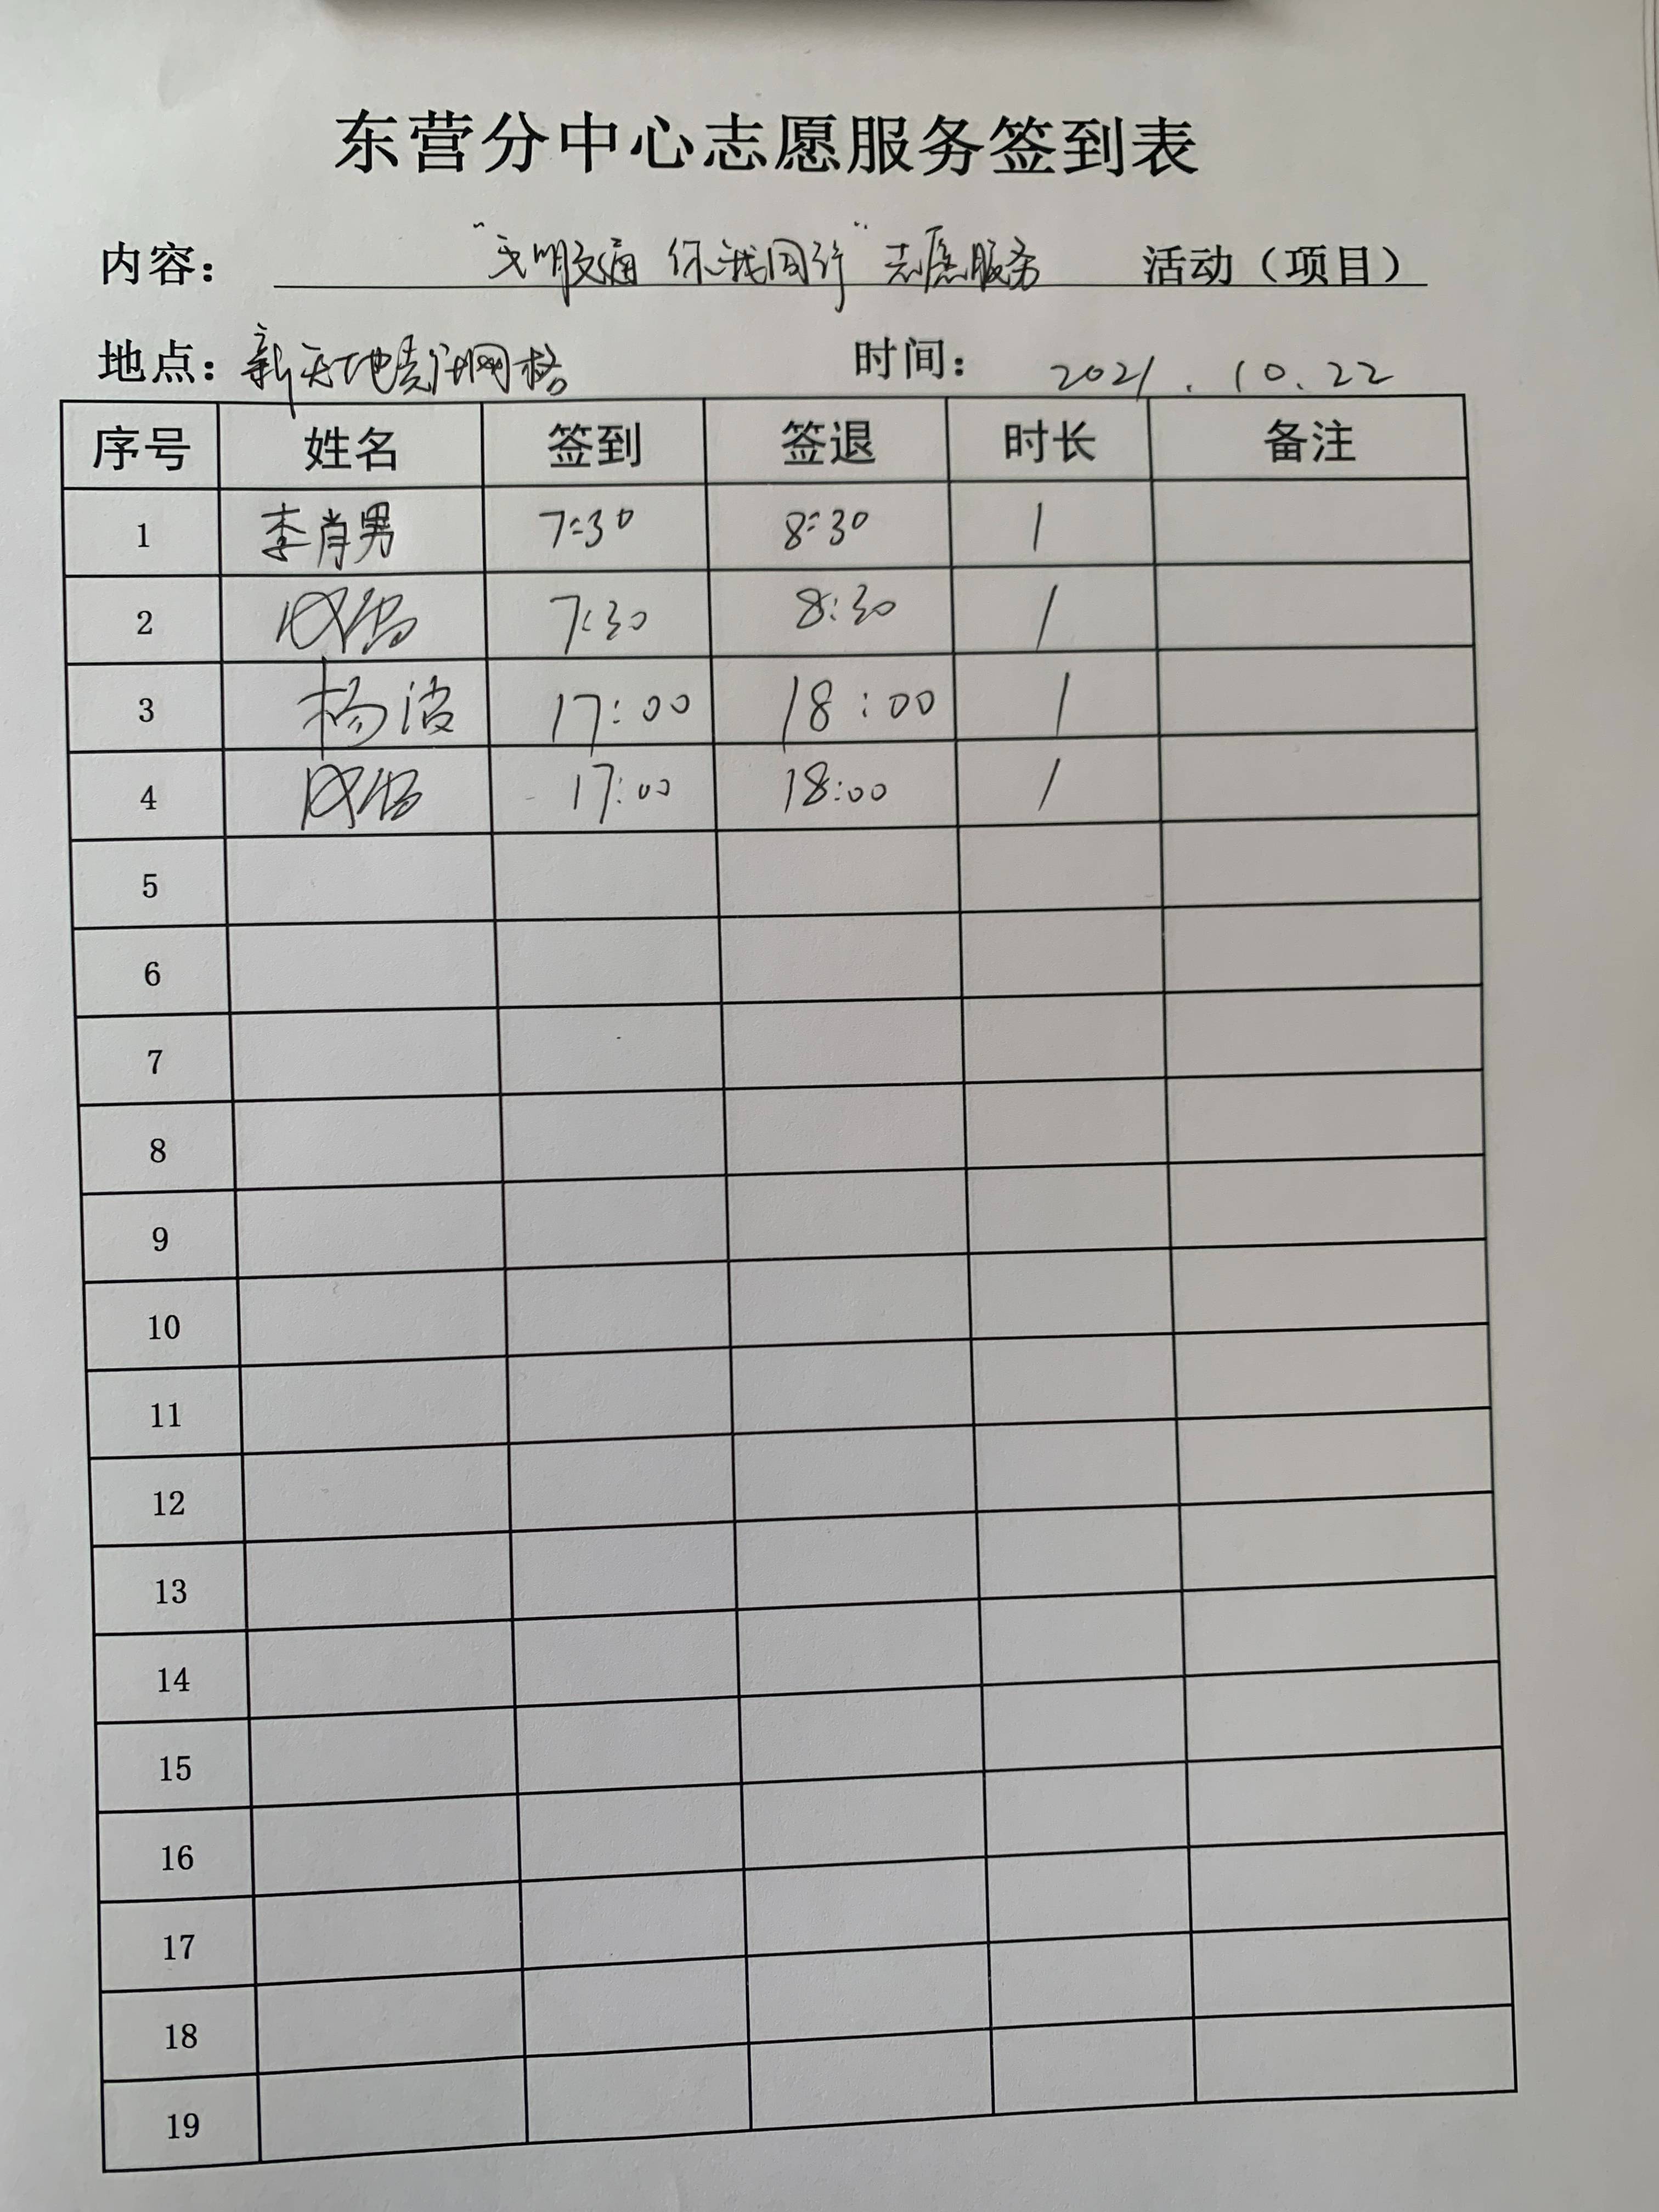 东营分中心志愿服务签到表
内容： “文明交通 你我同行”志愿服务 活动（项目）
地点：新天地 网格 时间： 2021.10.22
序号 姓名 签到 签退 时长 备注
1 李肖男 7:30 8:30 1
2 7:30 8:30 1
3 杨波 17:00 18:00 1
4 17:00 18:00 1
5
6
7
8
9
10
11
12
13
14
15
16
17
18
19